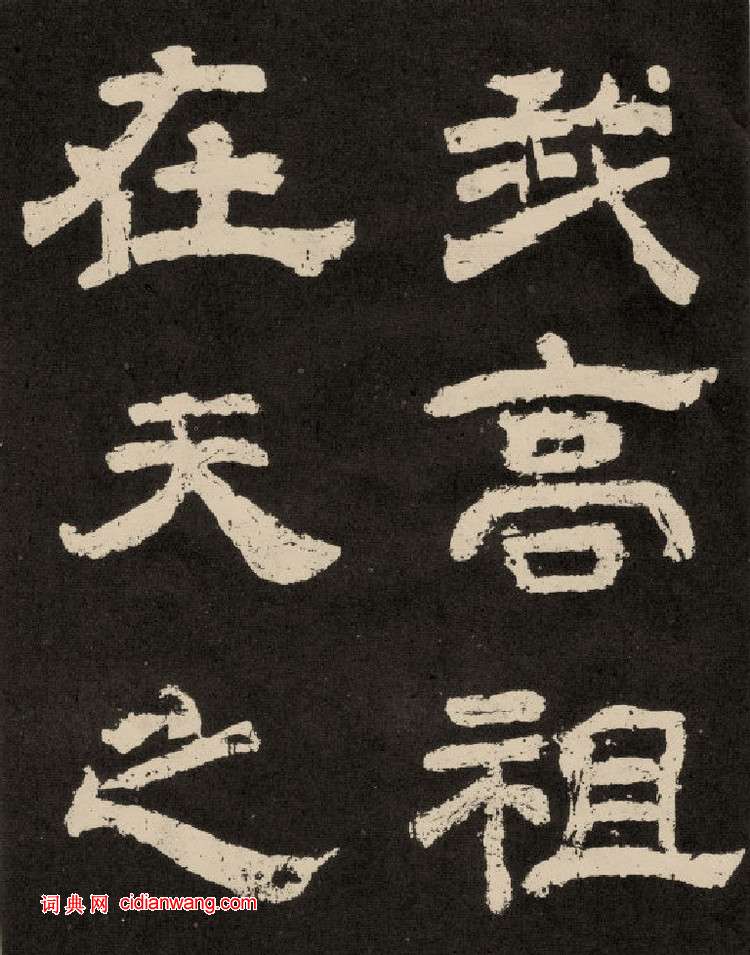 我高祖
在天之
词典网 cidianwang.com